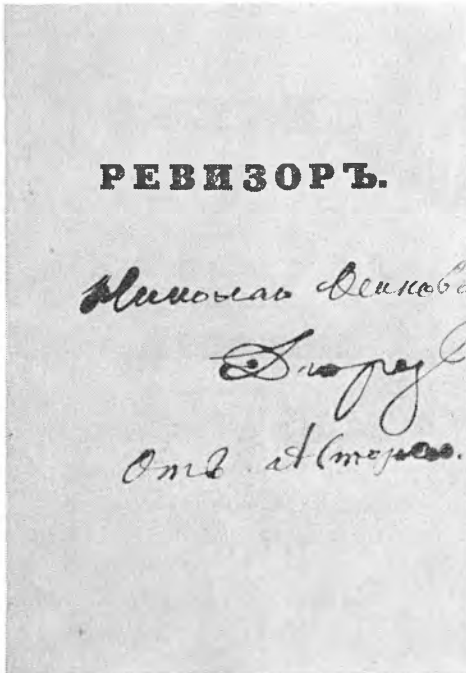 РЕВИЗОРЪ.
Николаю Осипов
Дюреу
Отъ Автора.